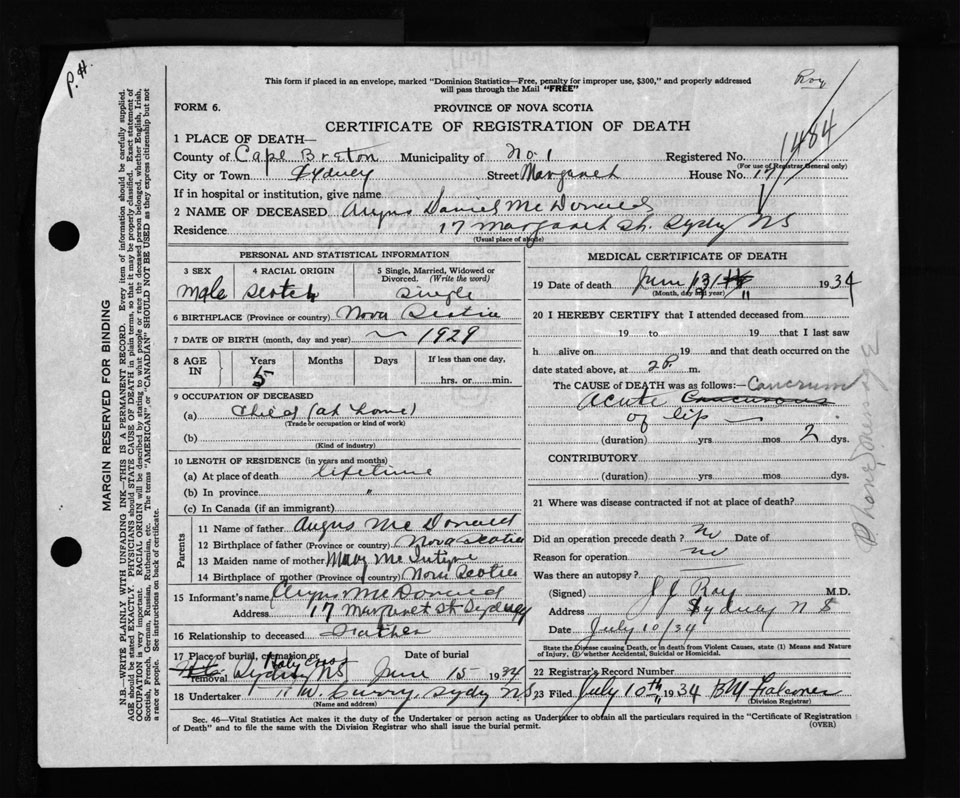 P.H.
This form if placed in an envelope, marked "Dominion Statistics—Free, penalty for improper use, $300," and properly addressed
will pass through the Mail "FREE"
Roy
FORM 6.
PROVINCE OF NOVA SCOTIA
CERTIFICATE OF REGISTRATION OF DEATH
1484
1 PLACE OF DEATH—
County of Cape Breton Municipality of No. 1 Registered No.
(For use of Registrar General only)
City or Town Sydney Street Margaret House No. 17
If in hospital or institution, give name
2 NAME OF DECEASED Angus Daniel McDonald
Residence 17 Margaret St. Sydny NS
(Usual place of abode)
PERSONAL AND STATISTICAL INFORMATION
3 SEX 4 RACIAL ORIGIN 5 Single, Married, Widowed or Divorced. (Write the word)
Male Scotch Single
6 BIRTHPLACE (Province or country) Nova Scotia
7 DATE OF BIRTH (month, day and year) — 1929
8 AGE IN Years Months Days If less than one day,
5 hrs. or min.
9 OCCUPATION OF DECEASED
(a) Child (at home)
(Trade or occupation or kind of work)
(b)
(Kind of industry)
10 LENGTH OF RESIDENCE (in years and months)
(a) At place of death lifetime
(b) In province "
(c) In Canada (if an immigrant)
Parents
11 Name of father Angus McDonald
12 Birthplace of father (Province or country) Nova Scotia
13 Maiden name of mother Mary McIntyre
14 Birthplace of mother (Province or country) Nova Scotia
15 Informant's name Angus McDonald
Address 17 Margaret St Sydney
16 Relationship to deceased Father
17 Place of burial, cremation or removal Holy Cross Sydney NS Date of burial June 15 1934
18 Undertaker W. Curry Sydy NS
(Name and address)
MEDICAL CERTIFICATE OF DEATH
19 Date of death June 13 " 1934
(Month, day and year)
20 I HEREBY CERTIFY that I attended deceased from
19 to 19 that I last saw
h alive on 19 and that death occurred on the
date stated above, at 2 P. m.
The CAUSE of DEATH was as follows:— Cancrum
Acute
of lip —
(duration) yrs. mos 2 dys.
CONTRIBUTORY
(duration) yrs. mos. dys.
21 Where was disease contracted if not at place of death?
Did an operation precede death? no Date of
Reason for operation no
Was there an autopsy?
(Signed) J J Roy M.D.
Address Sydney N S
Date July 10/34
State the Disease causing Death, or in death from Violent Causes, state (1) Means and Nature
of Injury, (2) whether Accidental, Suicidal or Homicidal.
22 Registrar's Record Number
23 Filed July 10th 1934 Falconer
(Division Registrar)
Sec. 46—Vital Statistics Act makes it the duty of the Undertaker or person acting as Undertaker to obtain all the particulars required in the "Certificate of Registration
of Death" and to file the same with the Division Registrar who shall issue the burial permit. (OVER)
MARGIN RESERVED FOR BINDING
N.B.—WRITE PLAINLY WITH UNFADING INK—THIS IS A PERMANENT RECORD. Every item of information should be carefully supplied.
AGE should be stated EXACTLY. PHYSICIANS should STATE CAUSE OF DEATH in plain terms, so that it may be properly classified. Exact statement of
OCCUPATION is very important. RACIAL ORIGIN will be described by stating to what people or race the deceased person belonged, whether English, Irish,
Scottish, French, German, Russian, Ruthenian, etc. The terms "AMERICAN" or "CANADIAN" SHOULD NOT BE USED as they express citizenship but not
a race or people. See instructions on back of certificate.